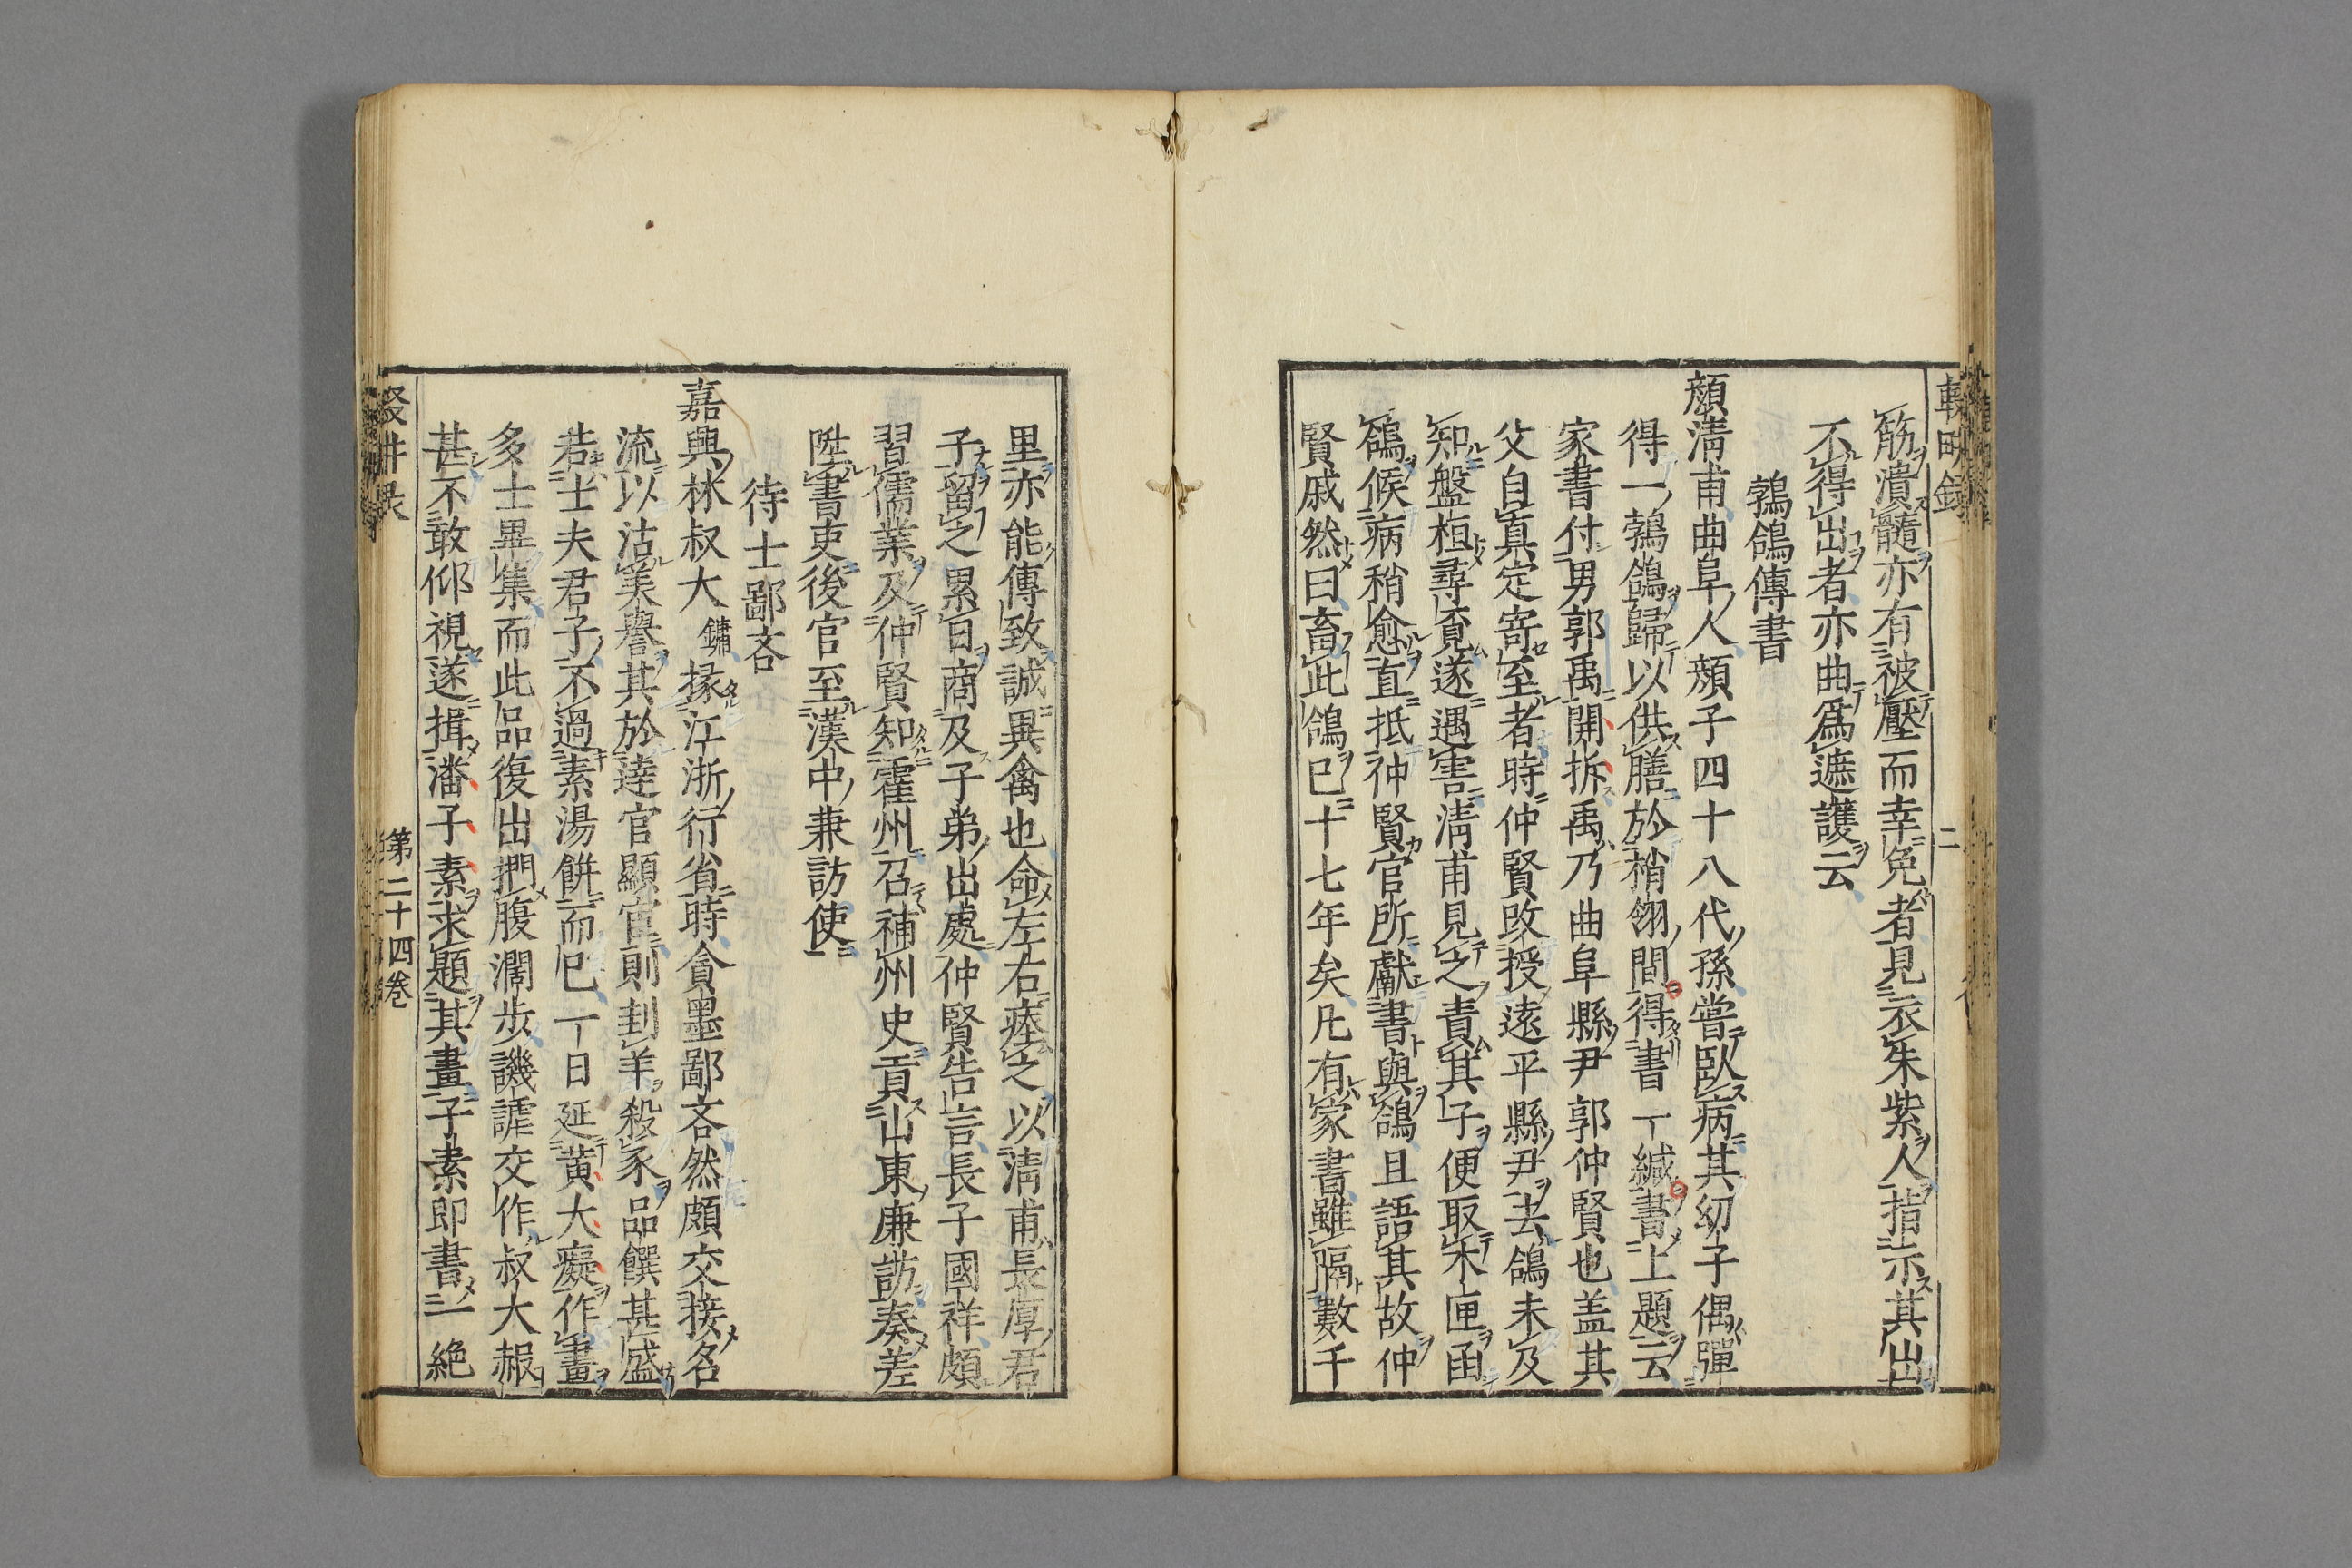 輟畊録 二
筋潰髓亦有被壓而幸免者見衣朱紫人指示其出
不得出者亦曲爲遮護云
鵓鴿傳書
顏清甫曲阜人顏子四十八代孫嘗臥病其幼子偶彈
得一鵓鴿歸以供膳於梢翎間得書一緘書上題云
家書付男郭禹開拆禹乃曲阜縣尹郭仲賢也盖其
父自真定寄至者時仲賢改授遠平縣尹去鴿未及
知盤桓尋覔遂遇害清甫見之責其子便取木匣函
鴿候病稍愈直抵仲賢官所獻書與鴿且語其故仲
賢戚然曰畜此鴿已十七年矣凡有家書雖隔數千
里亦能傳致誠異禽也命左右瘞之以清甫長厚君
子留之累日商及子弟出處仲賢告言長子國祥頗
習儒業及仲賢知霍州召補州史貢山東廉訪奏差
陞書吏後官至漢中兼訪使
待士鄙吝
嘉興林叔大鏞掾江浙行省時貪墨鄙吝然頗交接名
流以沽美譽其於達官顯宦則刲羊殺豕品饌甚盛
若士夫君子不過素湯餅而已一日延黄大癡作畫
多士畢集而此品復出捫腹濶步譏謔交作叔大赧
甚不敢仰視遂揖潘子素求題其畫子素即書一絶
第二十四巻